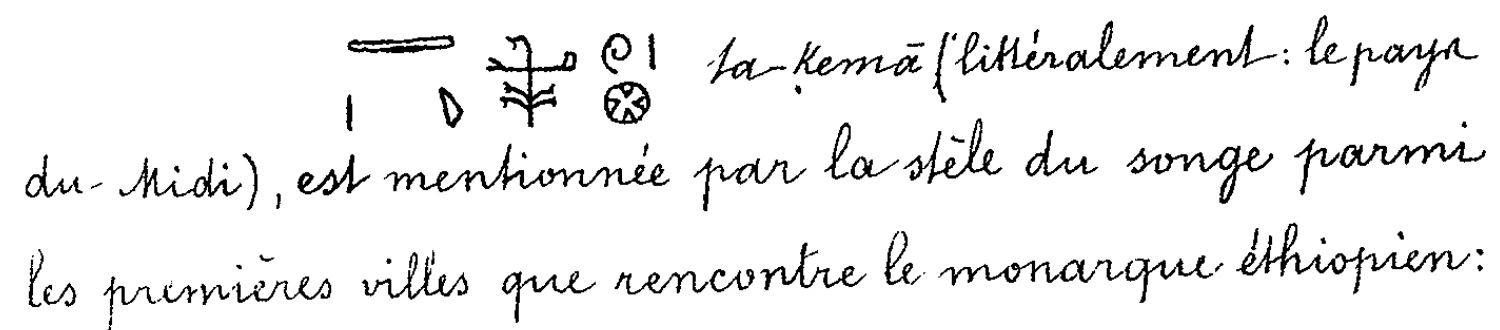 ta-Ḳemā (littéralement: le pays
du-Midi), est mentionnée par la stèle du songe parmi
les premières villes que rencontre le monarque éthiopien: